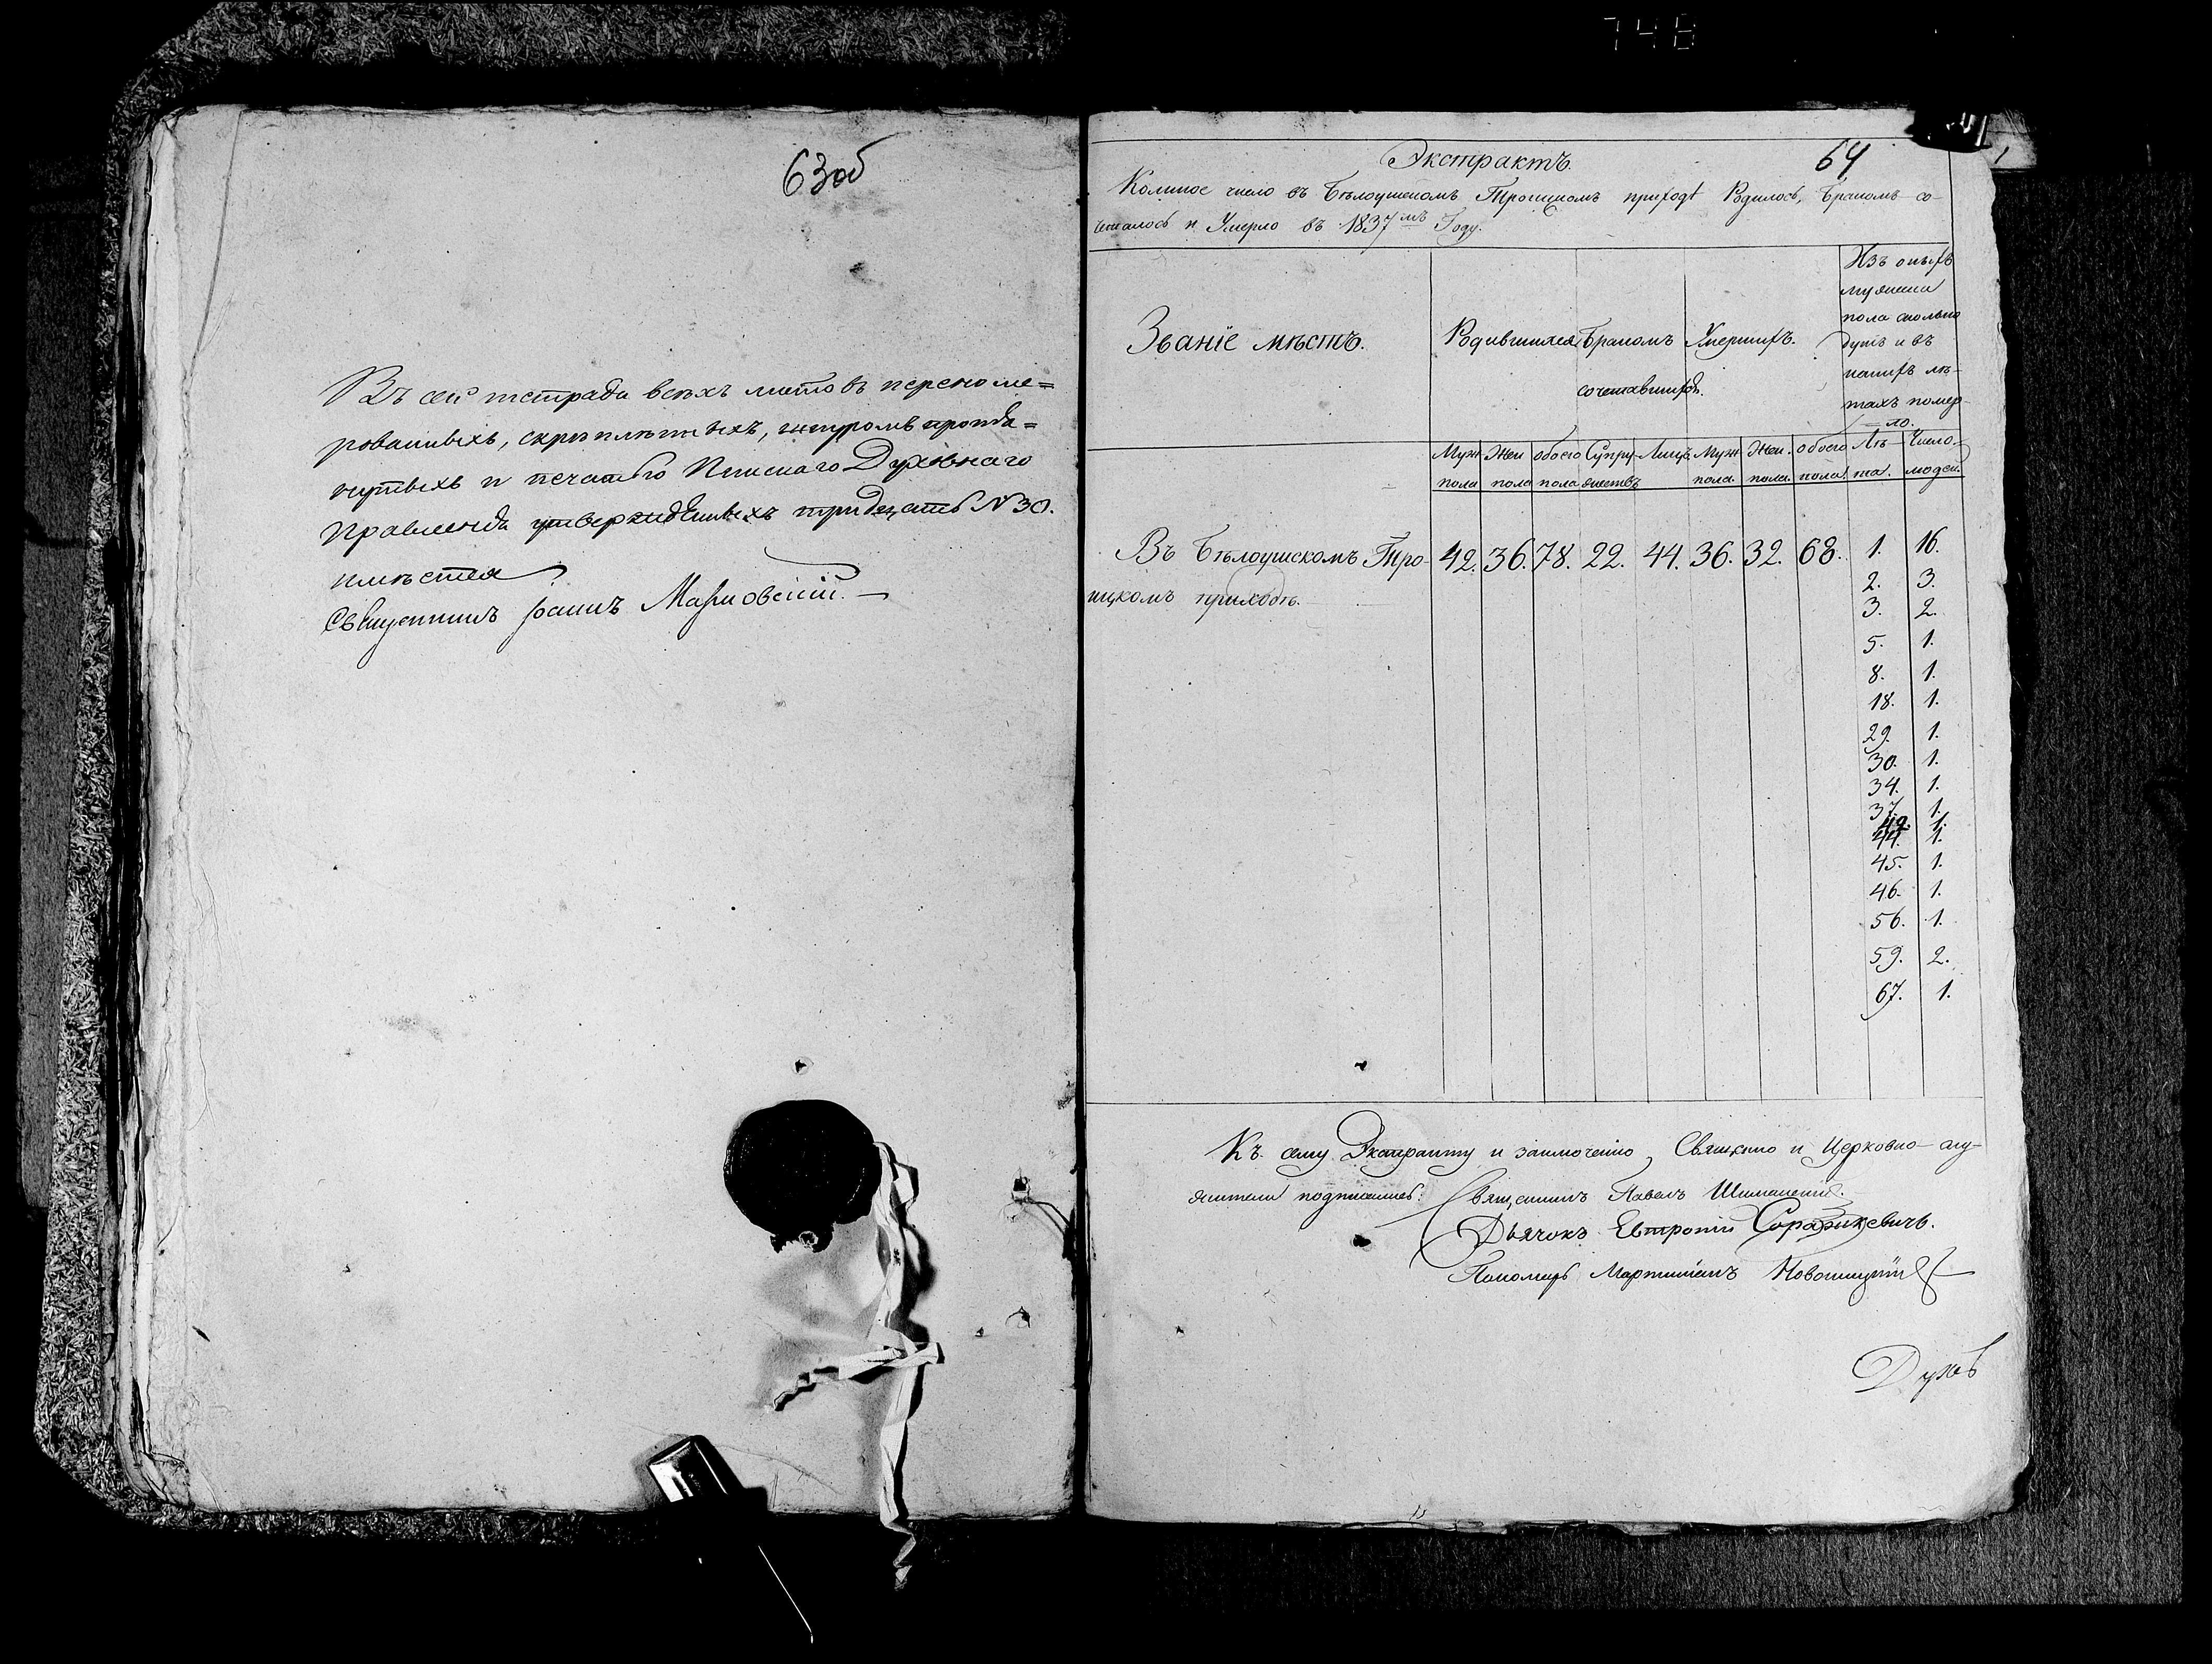 748
63об
Въ сей тетради всѣхъ листовъ переноме=
рованныхъ, скрѣпленныхъ, шнуромъ протя=
нутыхъ и печатью Пинскаго Духовнаго
Правленія утвержденныхъ тридцать N 30.
имѣется
Священникъ Іоаннъ
64
Экстрактъ.
Коликое число въ Бѣлоушскомъ Троицкомъ приходѣ Родилось, Бракомъ со-
четалось и Умерло въ 1837мъ Году.
Званіе мѣстъ.
Родившихся
Бракомъ
сочетавшихся.
Умершихъ.
Изъ оныхъ
мужеска
пола сколько
душъ и въ
какихъ лѣ-
тахъ помер-
ло.
Муж пола
Жен пола
обоего пола
Супру жествъ
Лицъ.
Муж пола.
Жен. пола.
обоего пола.
Лѣ та.
Число людей.
Въ Бѣлоушскомъ Тро- 42. 36. 78. 22. 44. 36. 32. 68. 1. 16.
ицкомъ приходѣ.
2. 3.
3. 2.
5. 1.
8. 1.
18. 1.
29. 1.
30. 1.
34. 1.
37. 1.
42. 1.
44. 1.
45. 1.
46. 1.
56. 1.
59. 2.
67. 1.
Къ сему Экстракту и заключенію Священно и Церковно-слу-
жители подписались: Священникъ Павелъ
Дьячокъ Евтропій
Пономарь Мартиніанъ Новицкій
Духов